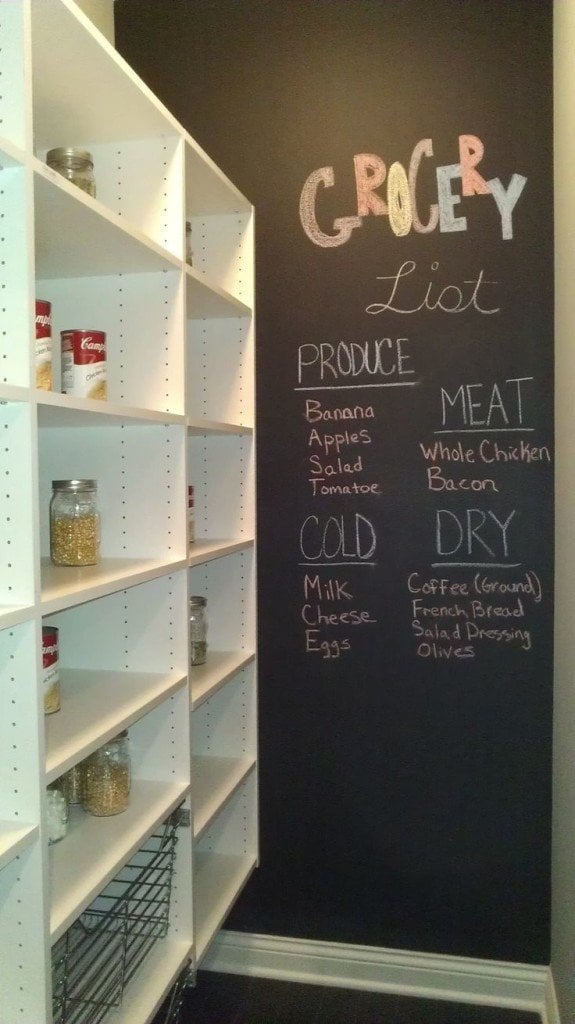 GROCERY
List
PRODUCE
Banana
Apples
Salad
Tomatoe
MEAT
Whole Chicken
Bacon
COLD
Milk
Cheese
Eggs
DRY
Coffee (Ground)
French Bread
Salad Dressing
Olives
Camp
Camp